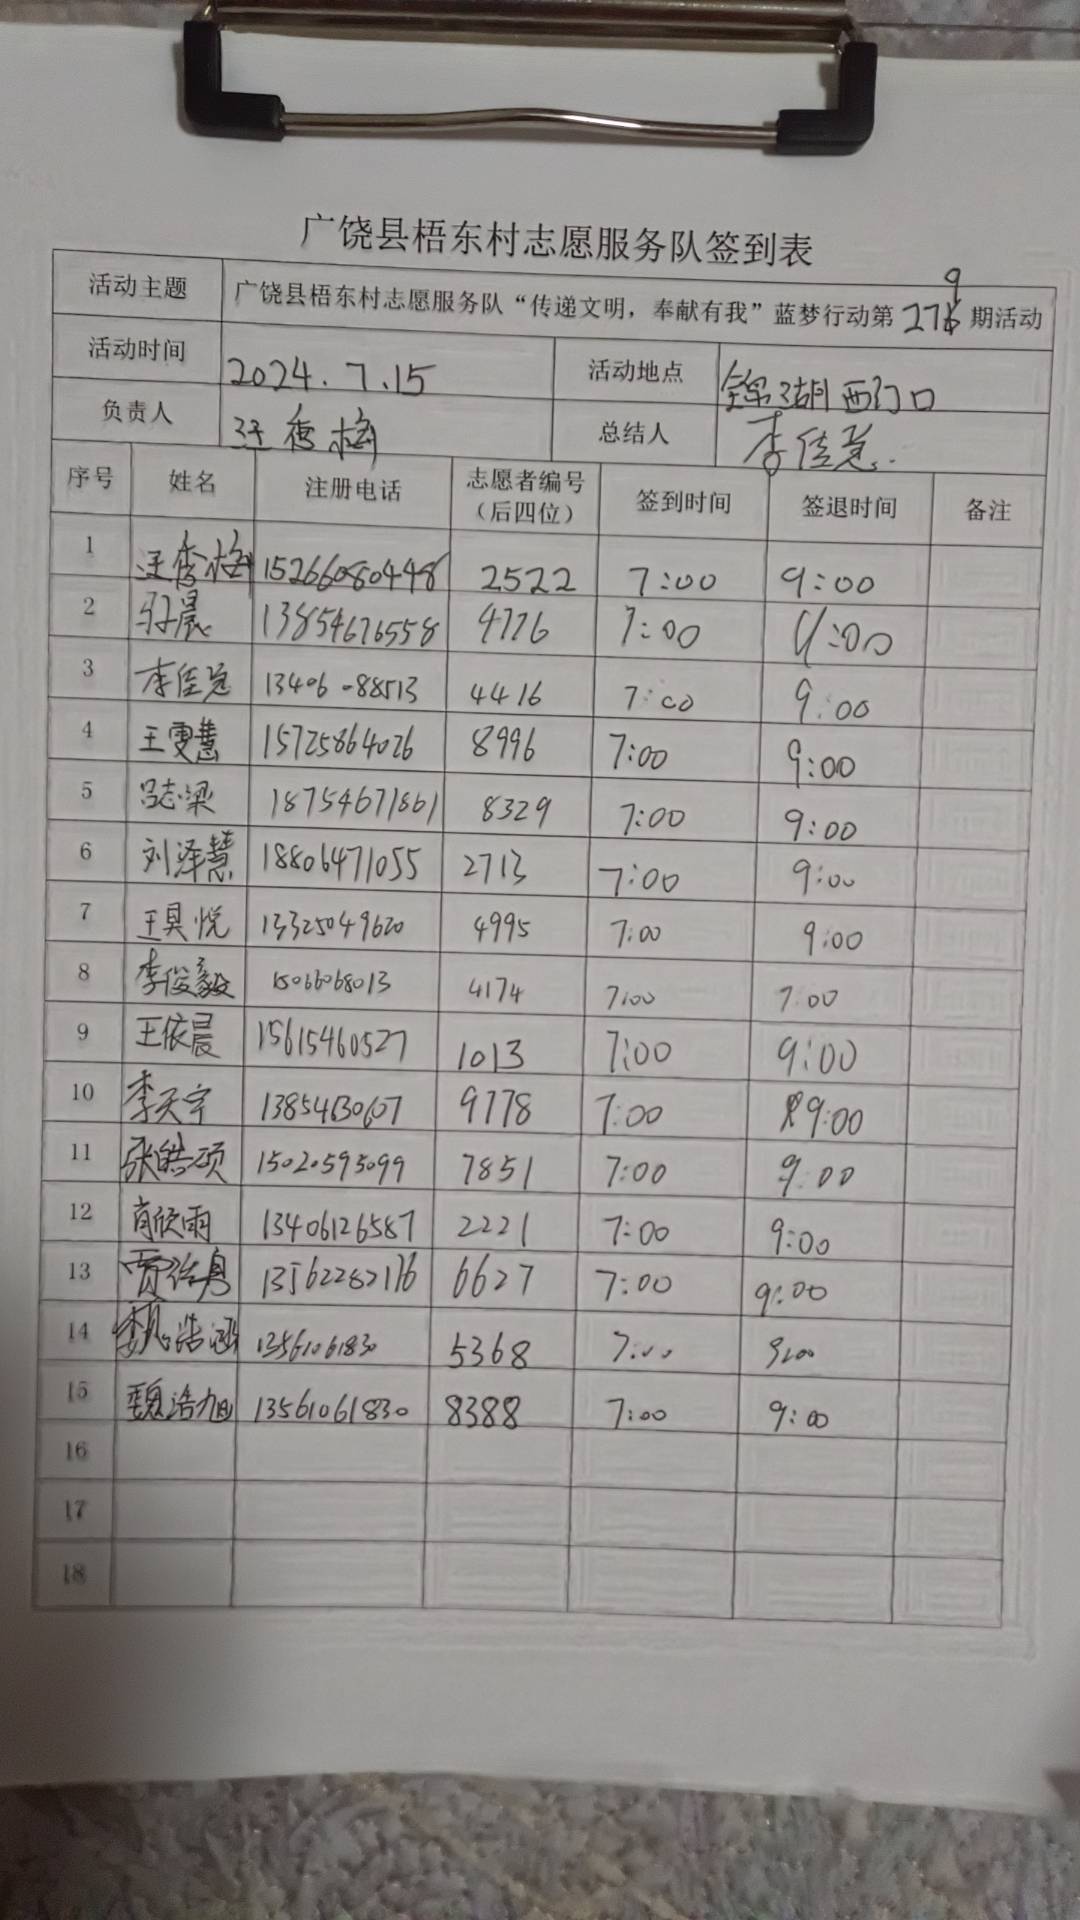 广饶县梧东村志愿服务队签到表
活动主题 广饶县梧东村志愿服务队“传递文明，奉献有我”蓝梦行动第279期活动
活动时间 2024.7.15 活动地点 锦湖西门口
负责人 汪香梅 总结人 李佳觉
序号 姓名 注册电话 志愿者编号（后四位） 签到时间 签退时间 备注
1 汪香梅 15266080448 2522 7:00 9:00
2 晨 13854676558 4776 7:00 9:00
3 李佳觉 13406-88513 4416 7:00 9:00
4 王雯慧 15725864026 8996 7:00 9:00
5 吕志梁 18754671861 8329 7:00 9:00
6 刘泽慧 18806471055 2713 7:00 9:00
7 王昊悦 13325049620 4995 7:00 9:00
8 李俊毅 15066068013 4174 7:00 7:00
9 王依晨 15615460527 1013 7:00 9:00
10 李天宇 13854630607 9778 7:00 9:00
11 张皓硕 15020595099 7851 7:00 9:00
12 肖欣雨 13406126587 2221 7:00 9:00
13 贾 13562282116 6627 7:00 9:00
14 魏浩涵 13561061830 5368 7:00 9:00
15 魏浩旭 13561061830 8388 7:00 9:00
16
17
18